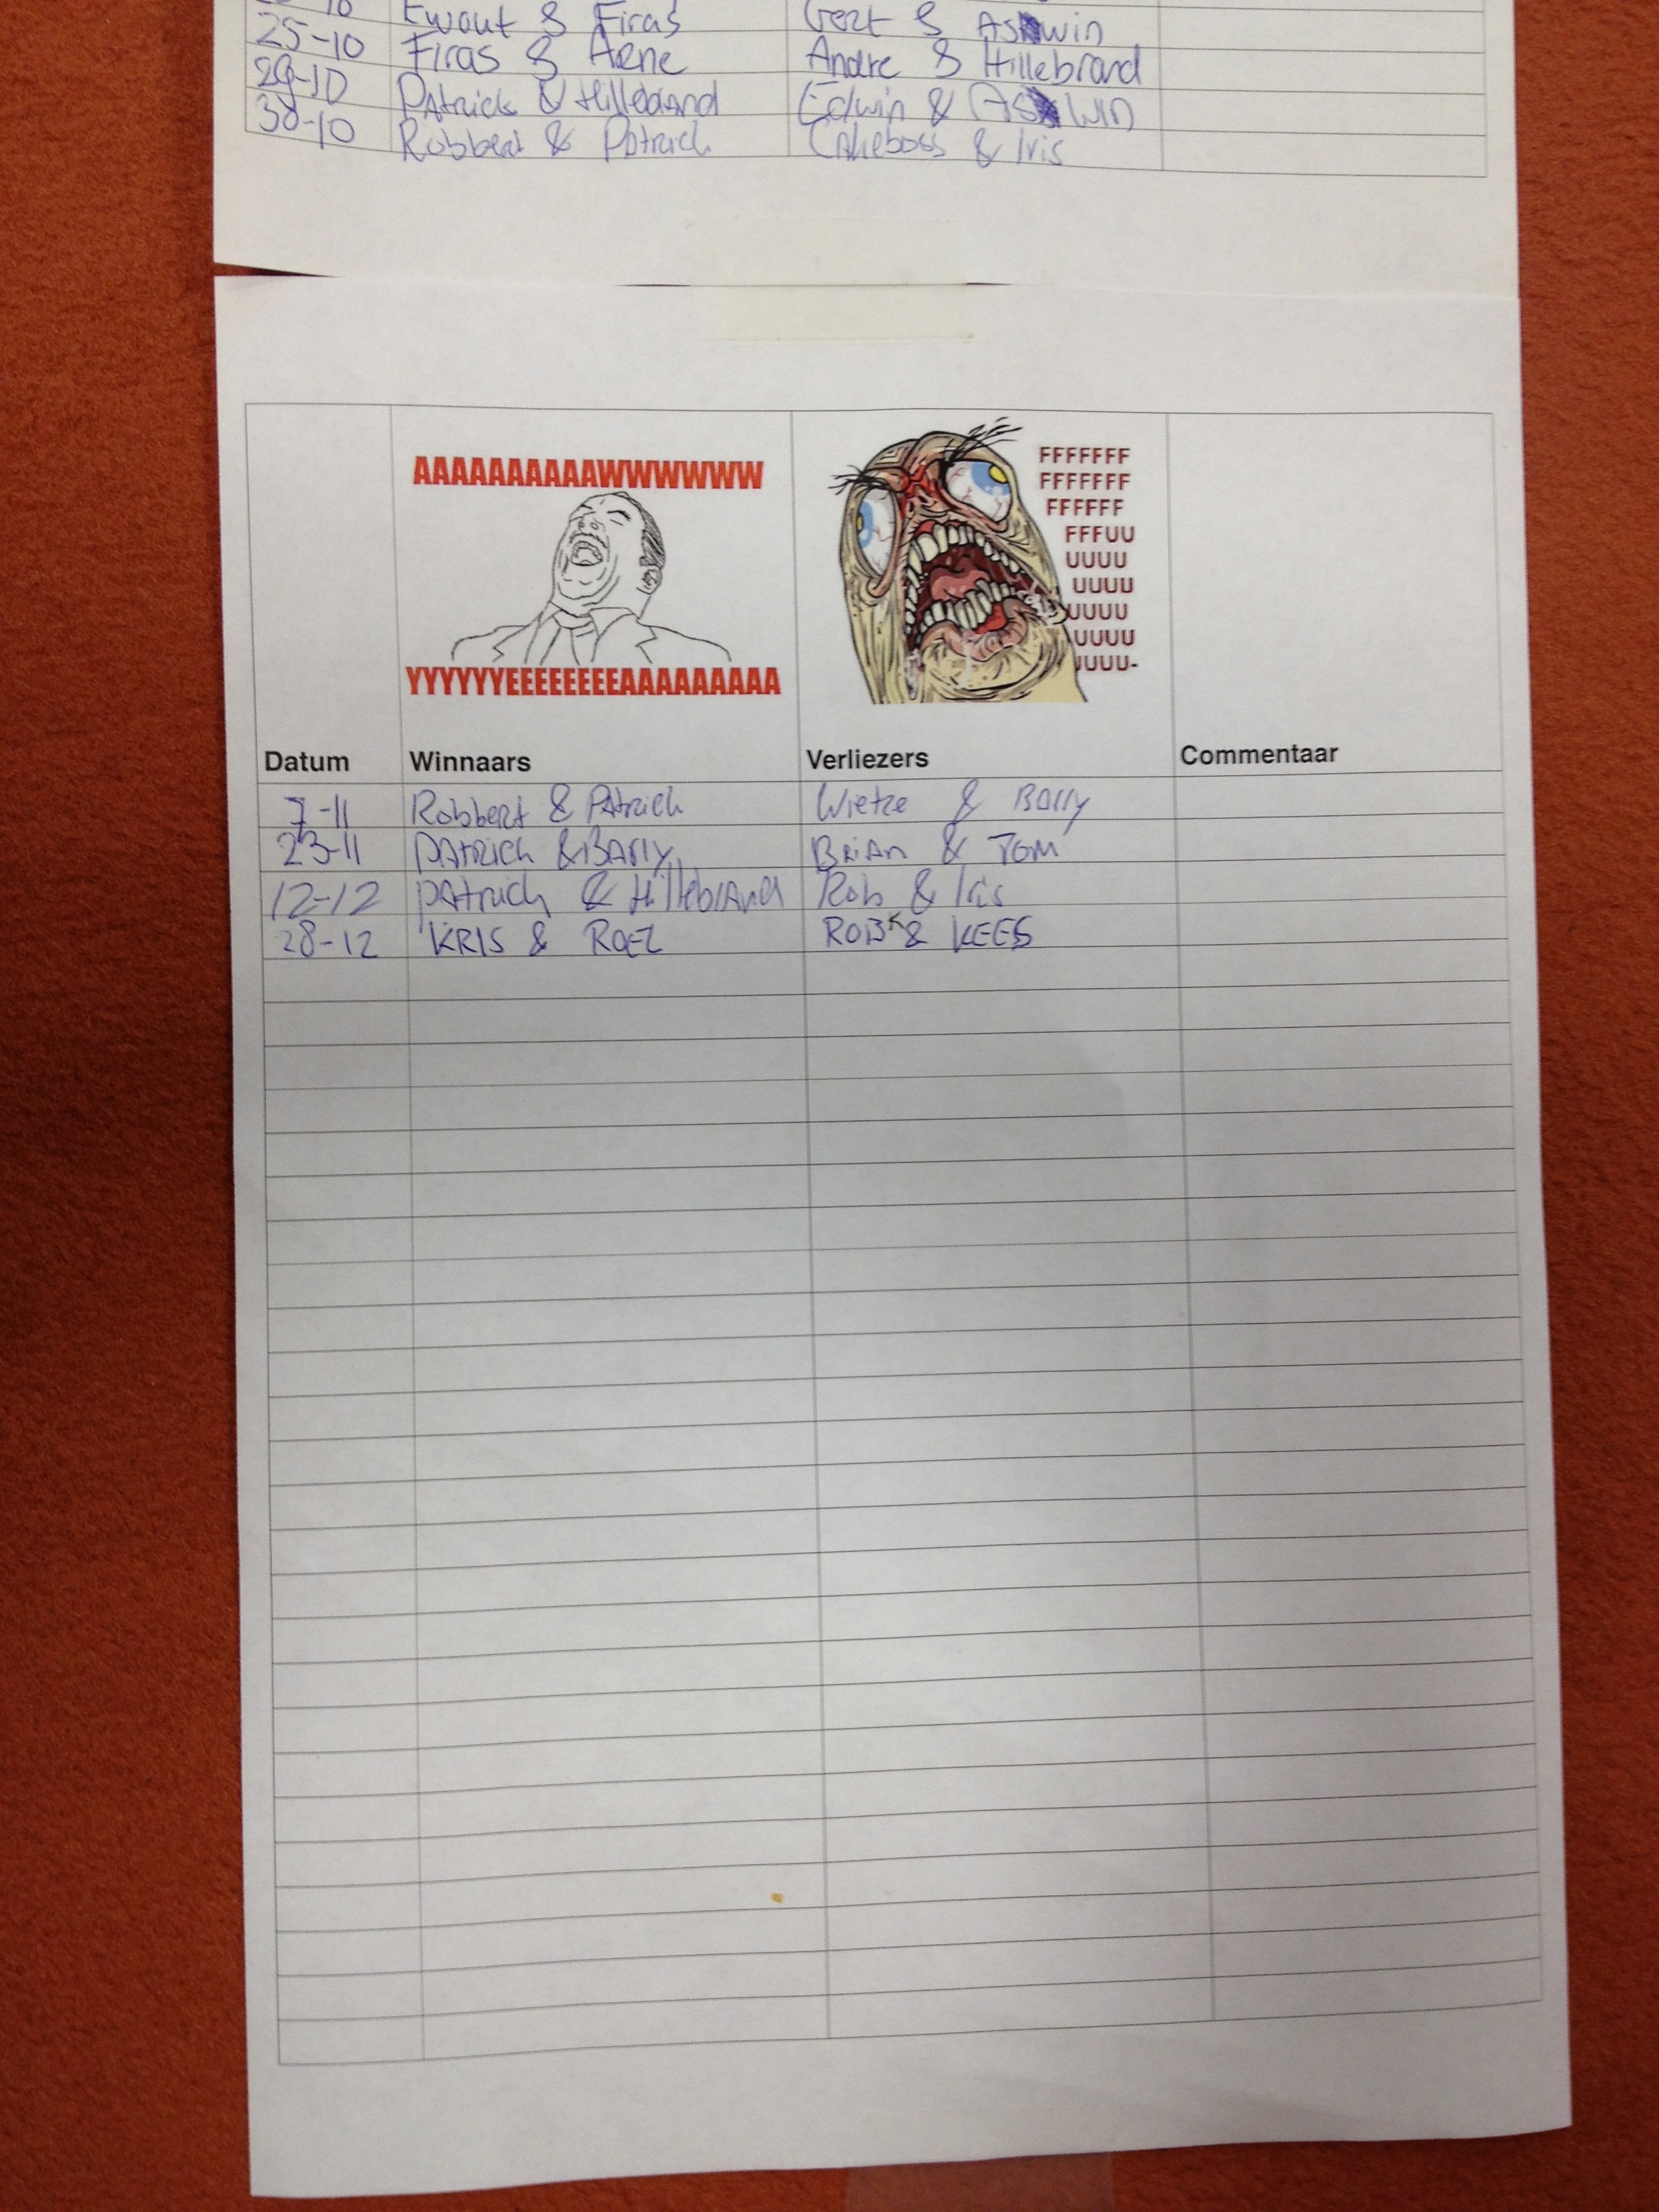 10 Ewout & Firas Gert & Aswin
25-10 Firas & Arne Andre & Hillebrand
29-10 Patrick & Hillebrand Edwin & Aswin
30-10 Robbert & Patrick Cakeboss & Iris
AAAAAAAAAAWWWWWW
YYYYYYEEEEEEEEAAAAAAAAA
FFFFFFF
FFFFFFF
FFFFFF
FFFUU
UUUU
UUUU
UUUU
UUUU
UUUU-
Datum Winnaars Verliezers Commentaar
7-11 Robbert & Patrick Wietze & Barry
23-11 Patrick & Barry Brian & Tom
12-12 Patrick & Hillebrand Rob & Iris
28-12 KRIS & ROEL ROB K & KEES